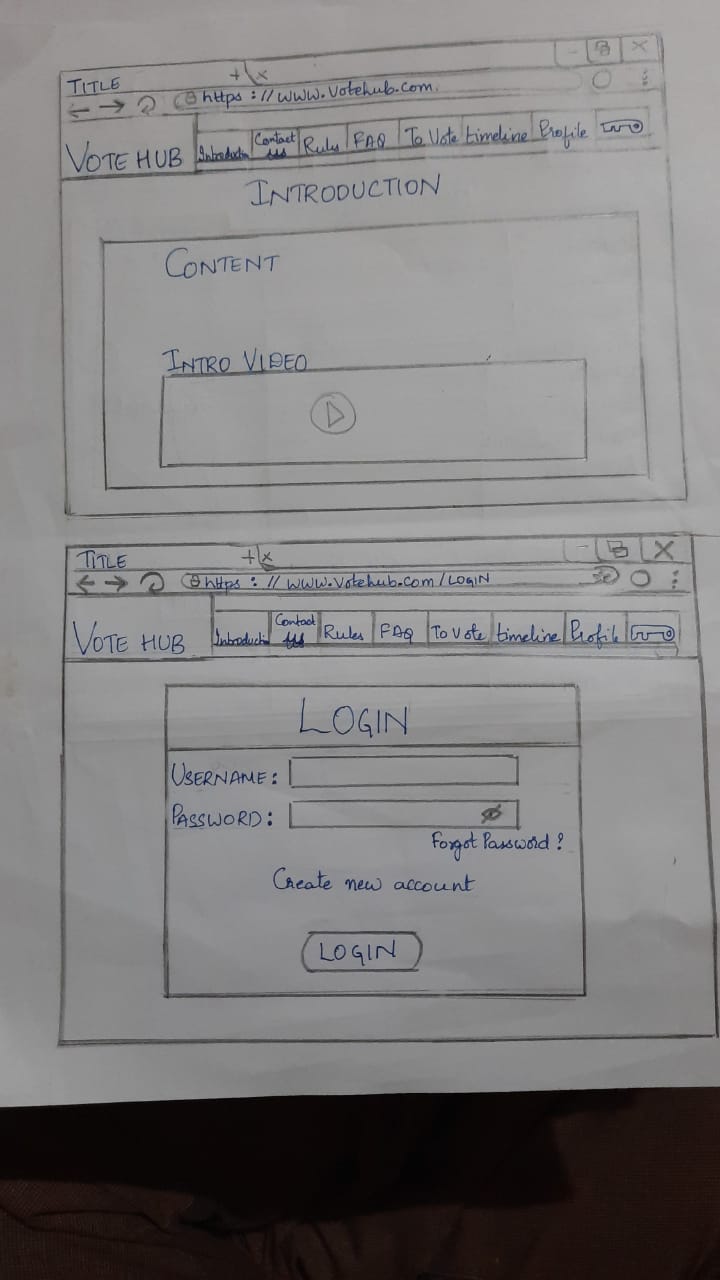 TITLE
https://www.votehub.com.
VOTE HUB Introduction Contact Rules FAQ To Vote timeline Profile
INTRODUCTION
CONTENT
INTRO VIDEO
TITLE
https://www.votehub.com/LOGIN
VOTE HUB Introduction Contact Rules FAQ To Vote timeline Profile
LOGIN
USERNAME:
PASSWORD:
Forgot Password?
Create new account
LOGIN